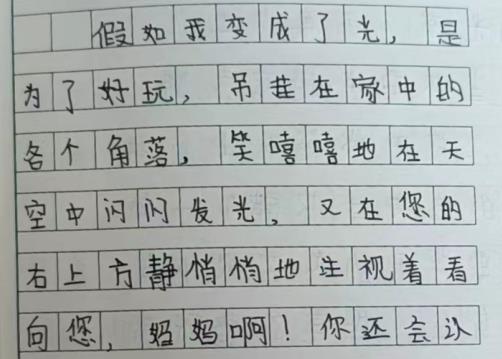 假如我变成了光，是
为了好玩，吊挂在家中的
各个角落，笑嘻嘻地在天
空中闪闪发光，又在您的
右上方静悄悄地注视着看
向您，妈妈啊！你还会认